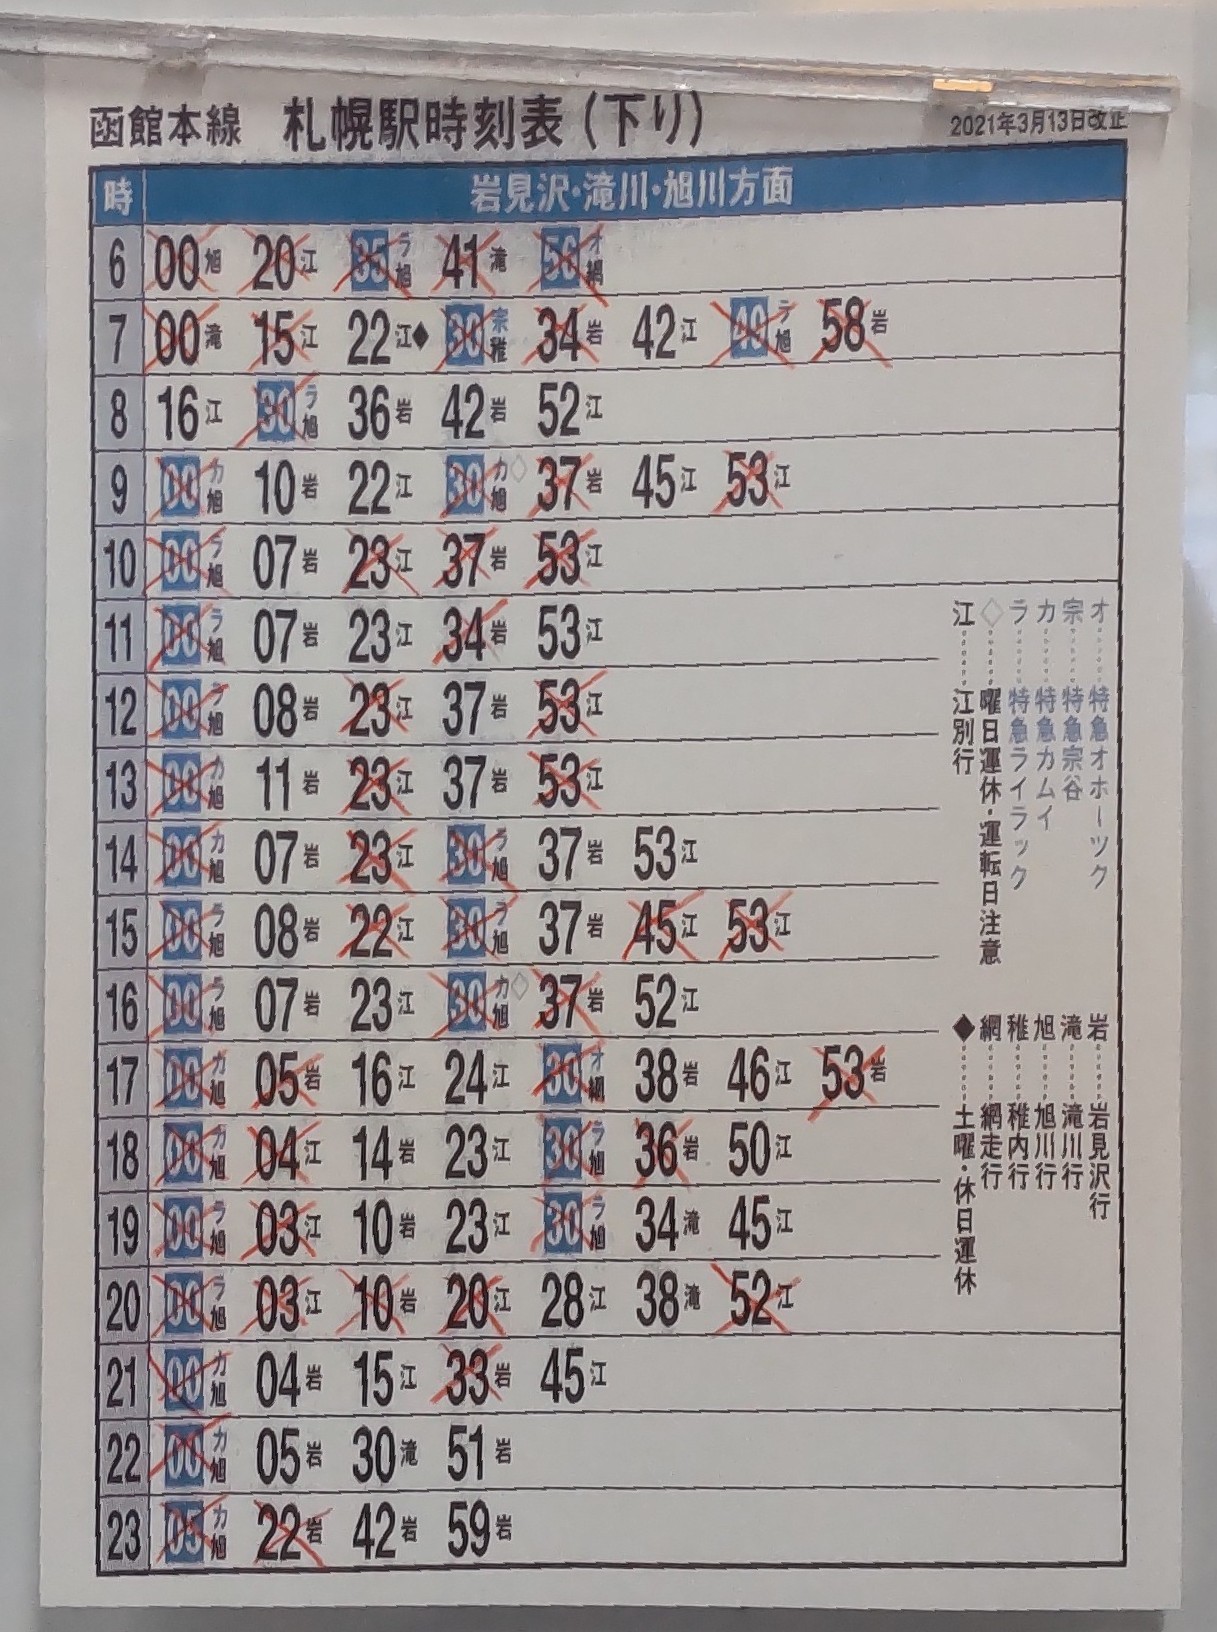 函館本線 札幌駅時刻表(下り) 2021年3月13日改正
時 岩見沢・滝川・旭川方面
6 00旭 20江 35ラ旭 41滝 56オ網
7 00滝 15江 22江◆ 30宗稚 34岩 42江 40ラ旭 58岩
8 16江 30ラ旭 36岩 42岩 52江
9 00カ旭 10岩 22江 30カ旭◇ 37岩 45江 53江
10 00ラ旭 07岩 23江 37岩 53江
11 00ラ旭 07岩 23江 34岩 53江
12 00ラ旭 08岩 23江 37岩 53江
13 00カ旭 11岩 23江 37岩 53江
14 00カ旭 07岩 23江 30ラ旭 37岩 53江
15 00ラ旭 08岩 22江 30ラ旭 37岩 45江 53江
16 00ラ旭 07岩 23江 30カ旭◇ 37岩 52江
17 00カ旭 05岩 16江 24江 30オ網 38岩 46江 53岩
18 00カ旭 04江 14岩 23江 30ラ旭 36岩 50江
19 00ラ旭 03江 10岩 23江 30ラ旭 34滝 45江
20 00ラ旭 03江 10岩 20江 28江 38滝 52江
21 00カ旭 04岩 15江 33岩 45江
22 00カ旭 05岩 30滝 51岩
23 05カ旭 22岩 42岩 59岩
オ……特急オホーツク
宗……特急宗谷
カ……特急カムイ
ラ……特急ライラック
◇……曜日運休・運転日注意
江……江別行
岩……岩見沢行
滝……滝川行
旭……旭川行
稚……稚内行
網……網走行
◆……土曜・休日運休